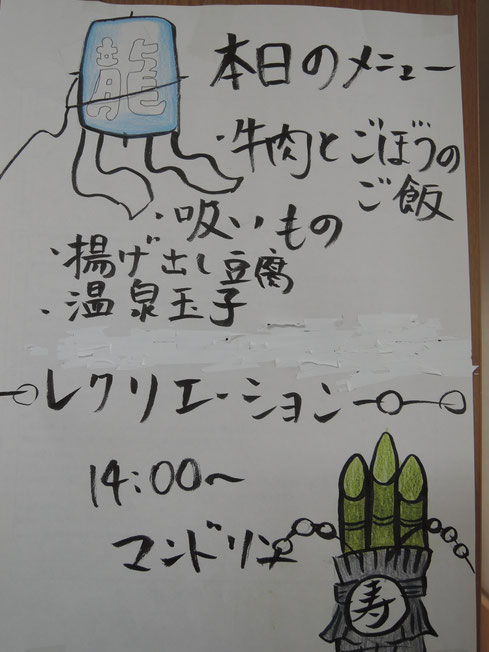 龍
本日のメニュー
・牛肉とごぼうの
ご飯
・吸いもの
・揚げ出し豆腐
・温泉玉子
レクリエーション
14:00〜
マンドリン
寿